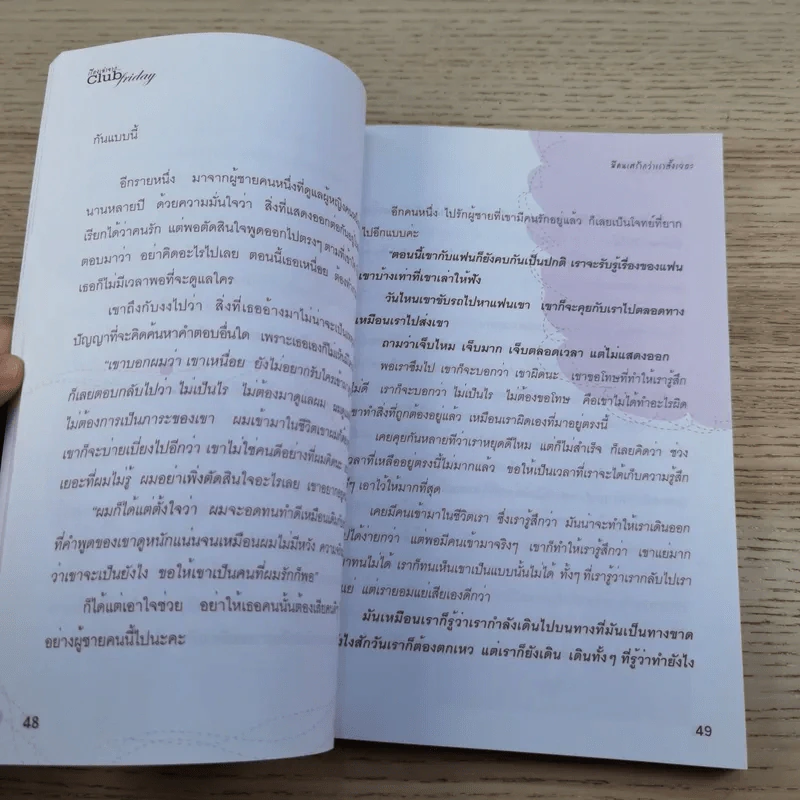 Club
friday
กันแบบนี้
อีกรายหนึ่ง มาจากผู้ชายคนหนึ่งที่ดูแลผู้หญิงคน
นานหลายปี ด้วยความมั่นใจว่า สิ่งที่แสดงออกต่อกัน
เรียกได้ว่าคนรัก แต่พอตัดสินใจพูดออกไปตรงๆ ตามที่
ตอบมาว่า อย่าคิดอะไรไปเลย ตอนนี้เธอเหนื่อย ต้อง
เธอก็ไม่มีเวลาพอที่จะดูแลใคร
เขาถึงกับงงไปว่า สิ่งที่เธออ้างมาไม่น่าจะเป็น
ปัญญาที่จะคิดค้นหาคำตอบอื่นใด เพราะเธอเองก็ไม่
“เขาบอกผมว่า เขาเหนื่อย ยังไม่อยากรับใครเข้ามา
ก็เลยตอบกลับไปว่า ไม่เป็นไร ไม่ต้องมาดูแลผม
ไม่ต้องการเป็นภาระของเขา ผมเข้ามาในชีวิตเขาผม
เขาก็จะบ่ายเบี่ยงไปอีกว่า เขาไม่ใช่คนดีอย่างที่ผมคิด
เยอะที่ผมไม่รู้ ผมอย่าเพิ่งตัดสินใจอะไรเลย เขาอยาก
“ผมก็ได้แต่ตั้งใจว่า ผมจะอดทนทำดีเหมือนเดิม
ที่คำพูดของเขาดูหนักแน่นจนเหมือนผมไม่มีหวัง
ว่าเขาจะเป็นยังไง ขอให้เขาเป็นคนที่ผมรักก็พอ”
ก็ได้แต่เอาใจช่วย อย่าให้เธอคนนั้นต้องเสียคน
อย่างผู้ชายคนนี้ไปนะคะ
48
อีกคนหนึ่ง ไปรักผู้ชายที่เขามีคนรักอยู่แล้ว ก็เลยเป็นโจทย์ที่ยาก
ไปอีกแบบค่ะ
“ตอนนี้เขากับแฟนก็ยังคบกันเป็นปกติ เราจะรับรู้เรื่องของแฟน
เขาบ้างเท่าที่เขาเล่าให้ฟัง
วันไหนเขาขับรถไปหาแฟนเขา เขาก็จะคุยกับเราไปตลอดทาง
เหมือนเราไปส่งเขา
ถามว่าเจ็บไหม เจ็บมาก เจ็บตลอดเวลา แต่ไม่แสดงออก
พอเราซึมไป เขาก็จะบอกว่า เขาผิดนะ เขาขอโทษที่ทำให้เรารู้สึก
ไม่ดี เราก็จะบอกว่า ไม่เป็นไร ไม่ต้องขอโทษ คือเขาไม่ได้ทำอะไรผิด
เขาทำสิ่งที่ถูกต้องอยู่แล้ว เหมือนเราผิดเองที่มาอยู่ตรงนี้
เคยคุยกันหลายทีว่าเราหยุดดีไหม แต่ก็ไม่สำเร็จ ก็เลยคิดว่า ช่วง
เวลาที่เหลืออยู่ตรงนี้ไม่มากแล้ว ขอให้เป็นเวลาที่เราจะได้เก็บความรู้สึก
ๆ เอาไว้ให้มากที่สุด
เคยมีคนเข้ามาในชีวิตเรา ซึ่งเรารู้สึกว่า มันน่าจะทำให้เราเดินออก
ไปได้ง่ายกว่า แต่พอมีคนเข้ามาจริงๆ เขาก็ทำให้เรารู้สึกว่า เขาแย่มาก
ทนไม่ได้ เราก็ทนเห็นเขาเป็นแบบนั้นไม่ได้ ทั้งๆ ที่เรารู้ว่าเรากลับไปเรา
แย่ แต่เรายอมแย่เสียเองดีกว่า
มันเหมือนเราก็รู้ว่าเรากำลังเดินไปบนทางที่มันเป็นทางขาด
ยังไงสักวันเราก็ต้องตกเหว แต่เราก็ยังเดิน เดินทั้งๆ ที่รู้ว่าทำยังไง
49